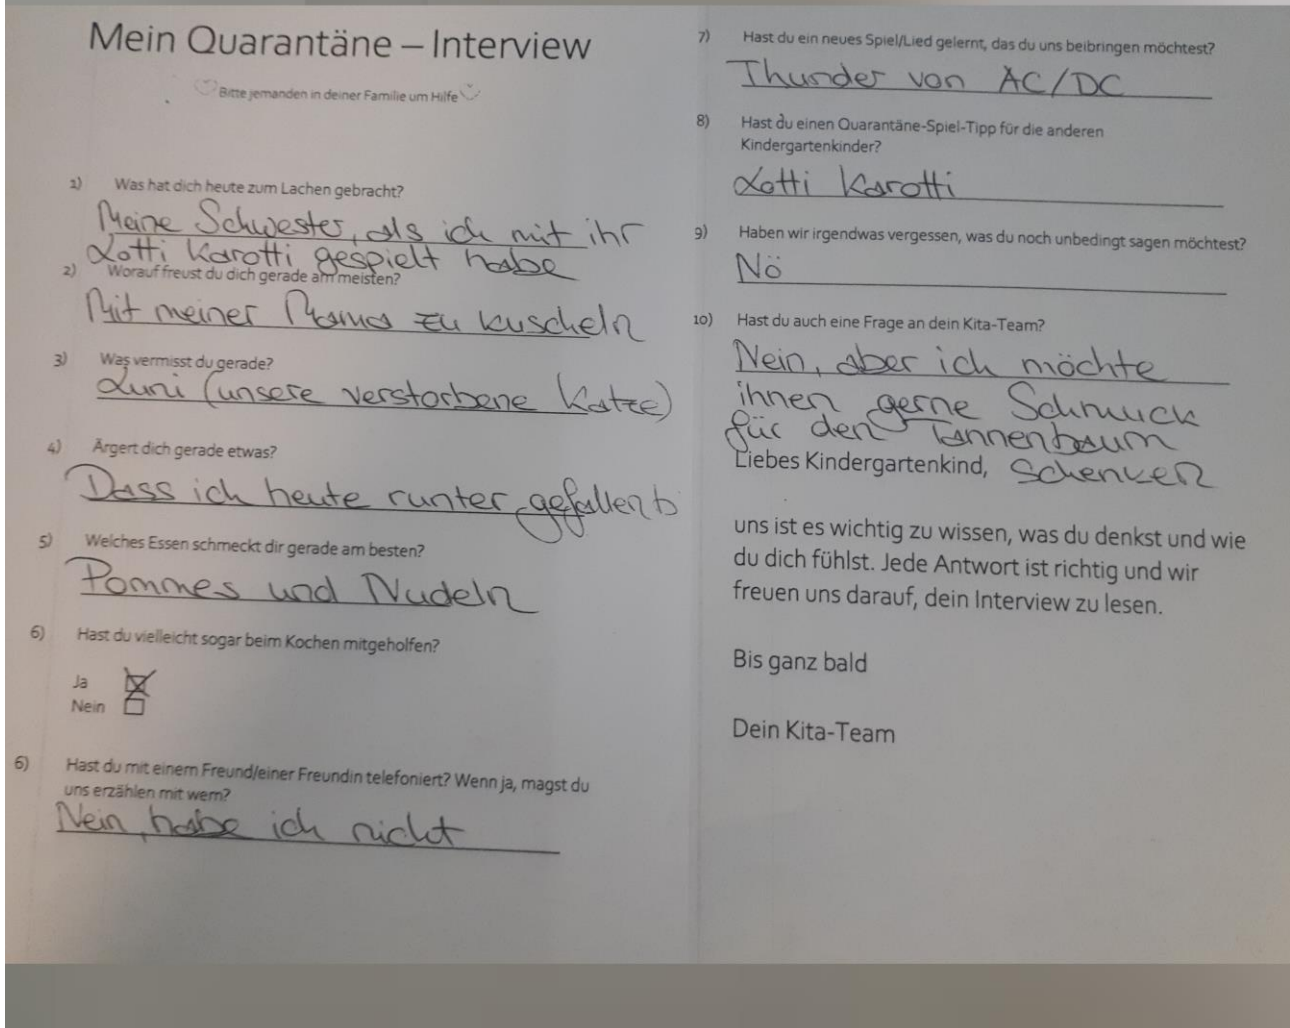 Mein Quarantäne – Interview
Bitte jemanden in deiner Familie um Hilfe
1) Was hat dich heute zum Lachen gebracht?
Meine Schwester, als ich mit ihr
Lotti Karotti gespielt habe
2) Worauf freust du dich gerade am meisten?
Mit meiner Mama zu kuscheln
3) Was vermisst du gerade?
Luni (unsere verstorbene Katze)
4) Ärgert dich gerade etwas?
Dass ich heute runter gefallen b
5) Welches Essen schmeckt dir gerade am besten?
Pommes und Nudeln
6) Hast du vielleicht sogar beim Kochen mitgeholfen?
Ja
Nein
6) Hast du mit einem Freund/einer Freundin telefoniert? Wenn ja, magst du
uns erzählen mit wem?
Nein, habe ich nicht
7) Hast du ein neues Spiel/Lied gelernt, das du uns beibringen möchtest?
Thunder von AC/DC
8) Hast du einen Quarantäne-Spiel-Tipp für die anderen
Kindergartenkinder?
Lotti Karotti
9) Haben wir irgendwas vergessen, was du noch unbedingt sagen möchtest?
Nö
10) Hast du auch eine Frage an dein Kita-Team?
Nein, aber ich möchte
ihnen gerne Schmuck
für den Tannenbaum
schenken
Liebes Kindergartenkind,
uns ist es wichtig zu wissen, was du denkst und wie
du dich fühlst. Jede Antwort ist richtig und wir
freuen uns darauf, dein Interview zu lesen.
Bis ganz bald
Dein Kita-Team